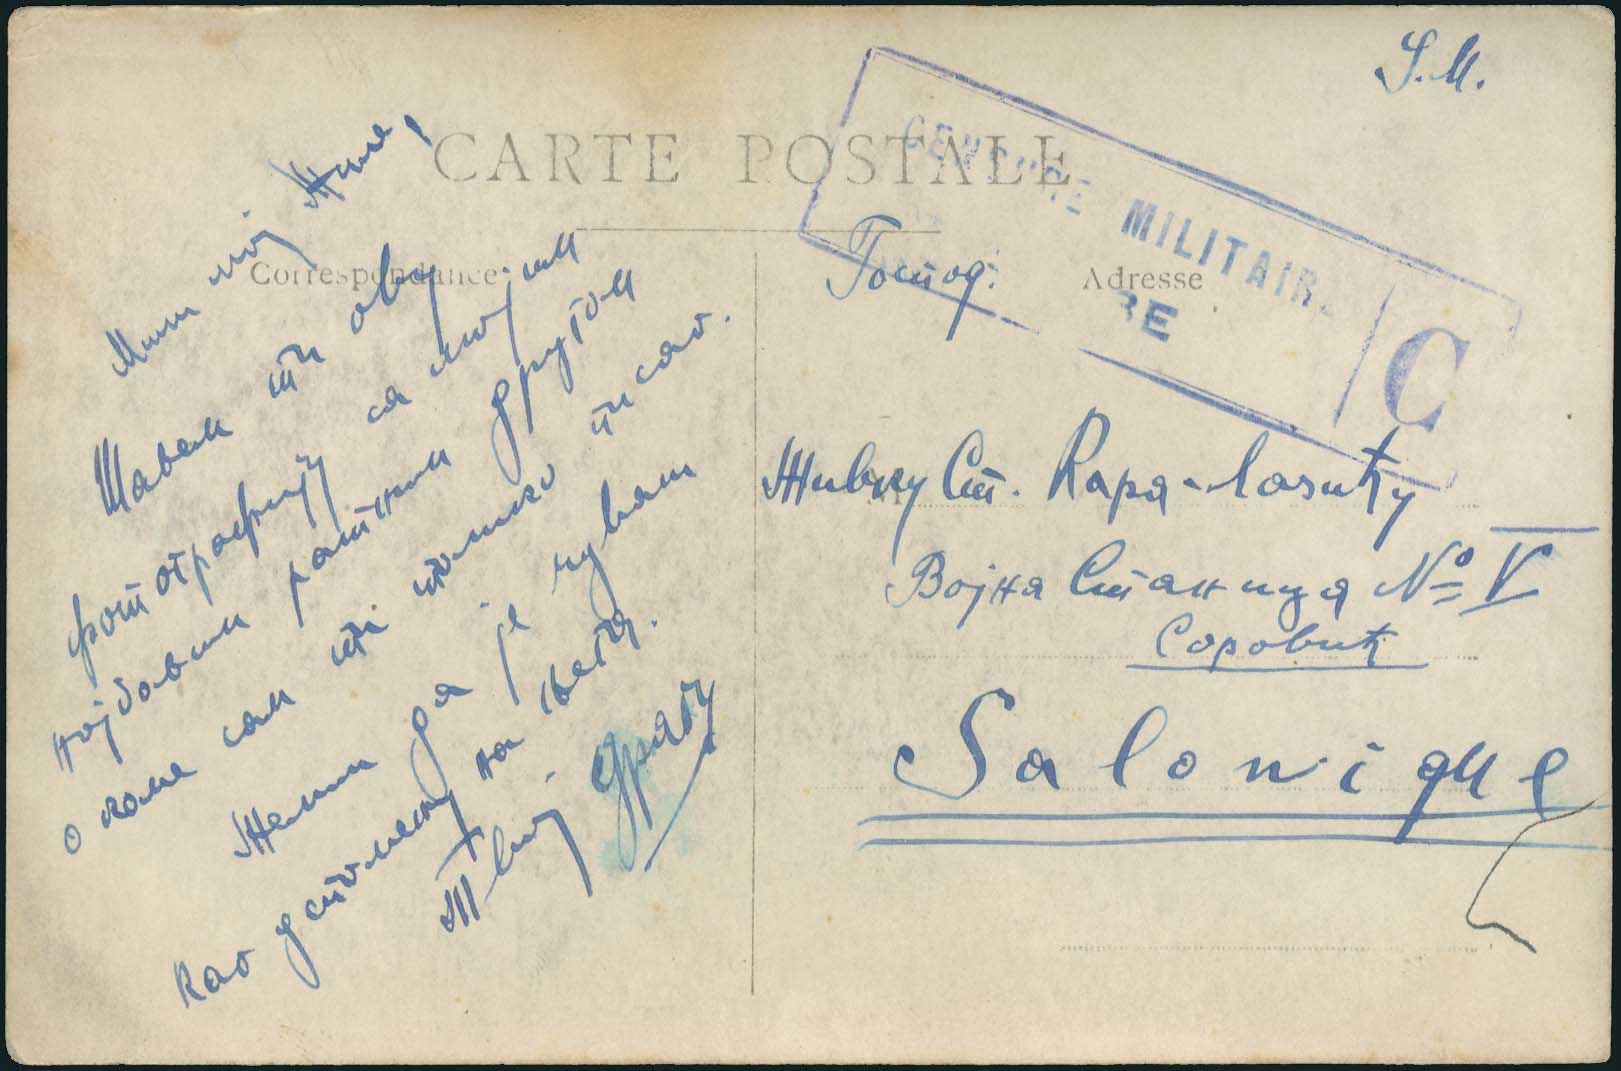 S.M.
CARTE POSTALE
CENSURE MILITAIRE
RE
C
Correspondance
Adresse
Мили мој Жиле,
Шаљем ти ову
фотографију са мојим
најбољим ратним другом
о коме сам ти толико писао.
Желим да је чуваш
као успомену на
Твој
Господ.
Живку Ст. Кара-Лазићу
Војна Станица № V
Соровић
Salonique